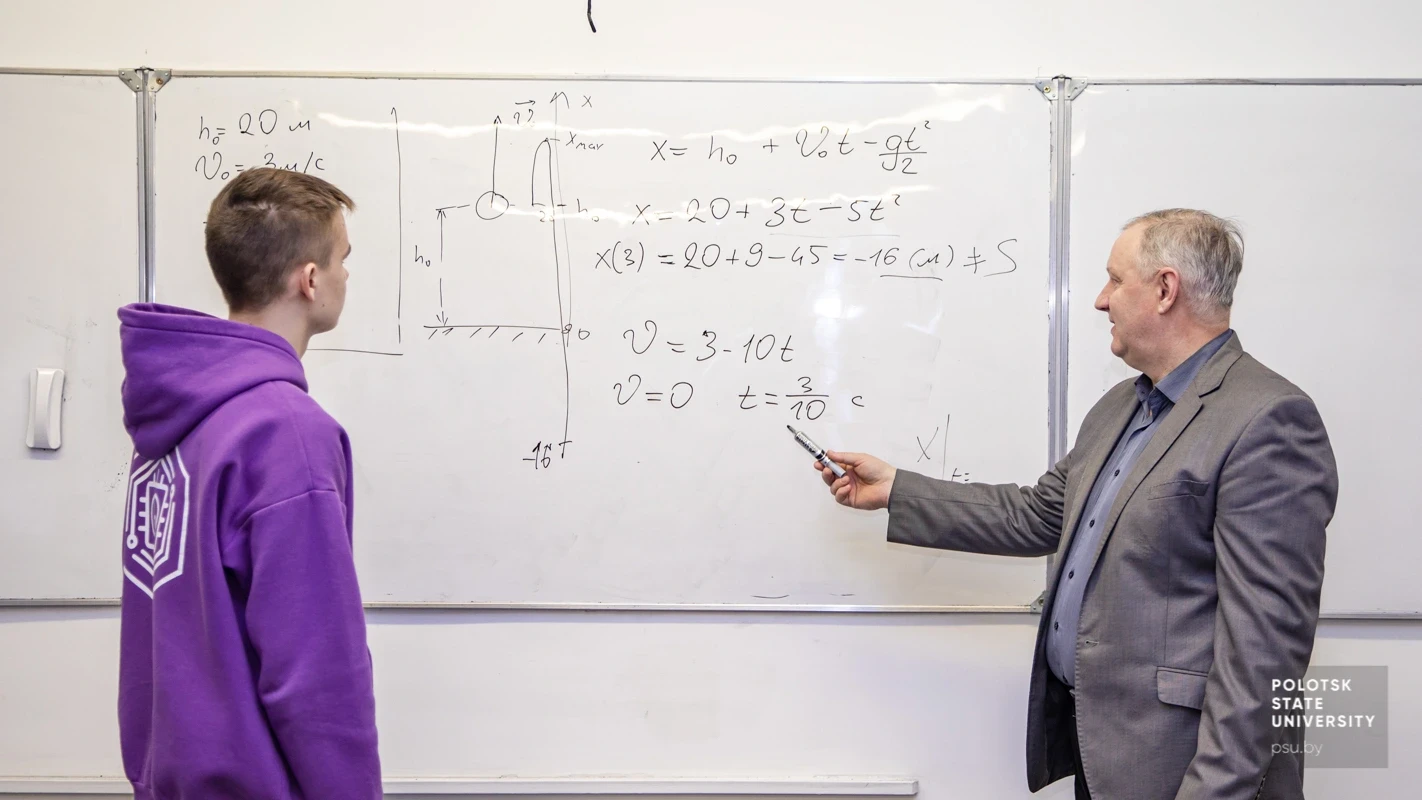 h₀ = 20 м
v₀ = 3 м/с
v⃗
x
x max
h₀
h₀
0
-16
x = h₀ + v₀t - gt²/2
x = 20 + 3t - 5t²
x(3) = 20 + 9 - 45 = -16 (м) ≠ S
v = 3 - 10t
v = 0 t = 3/10 с
x|
t=
POLOTSK
STATE
UNIVERSITY
psu.by